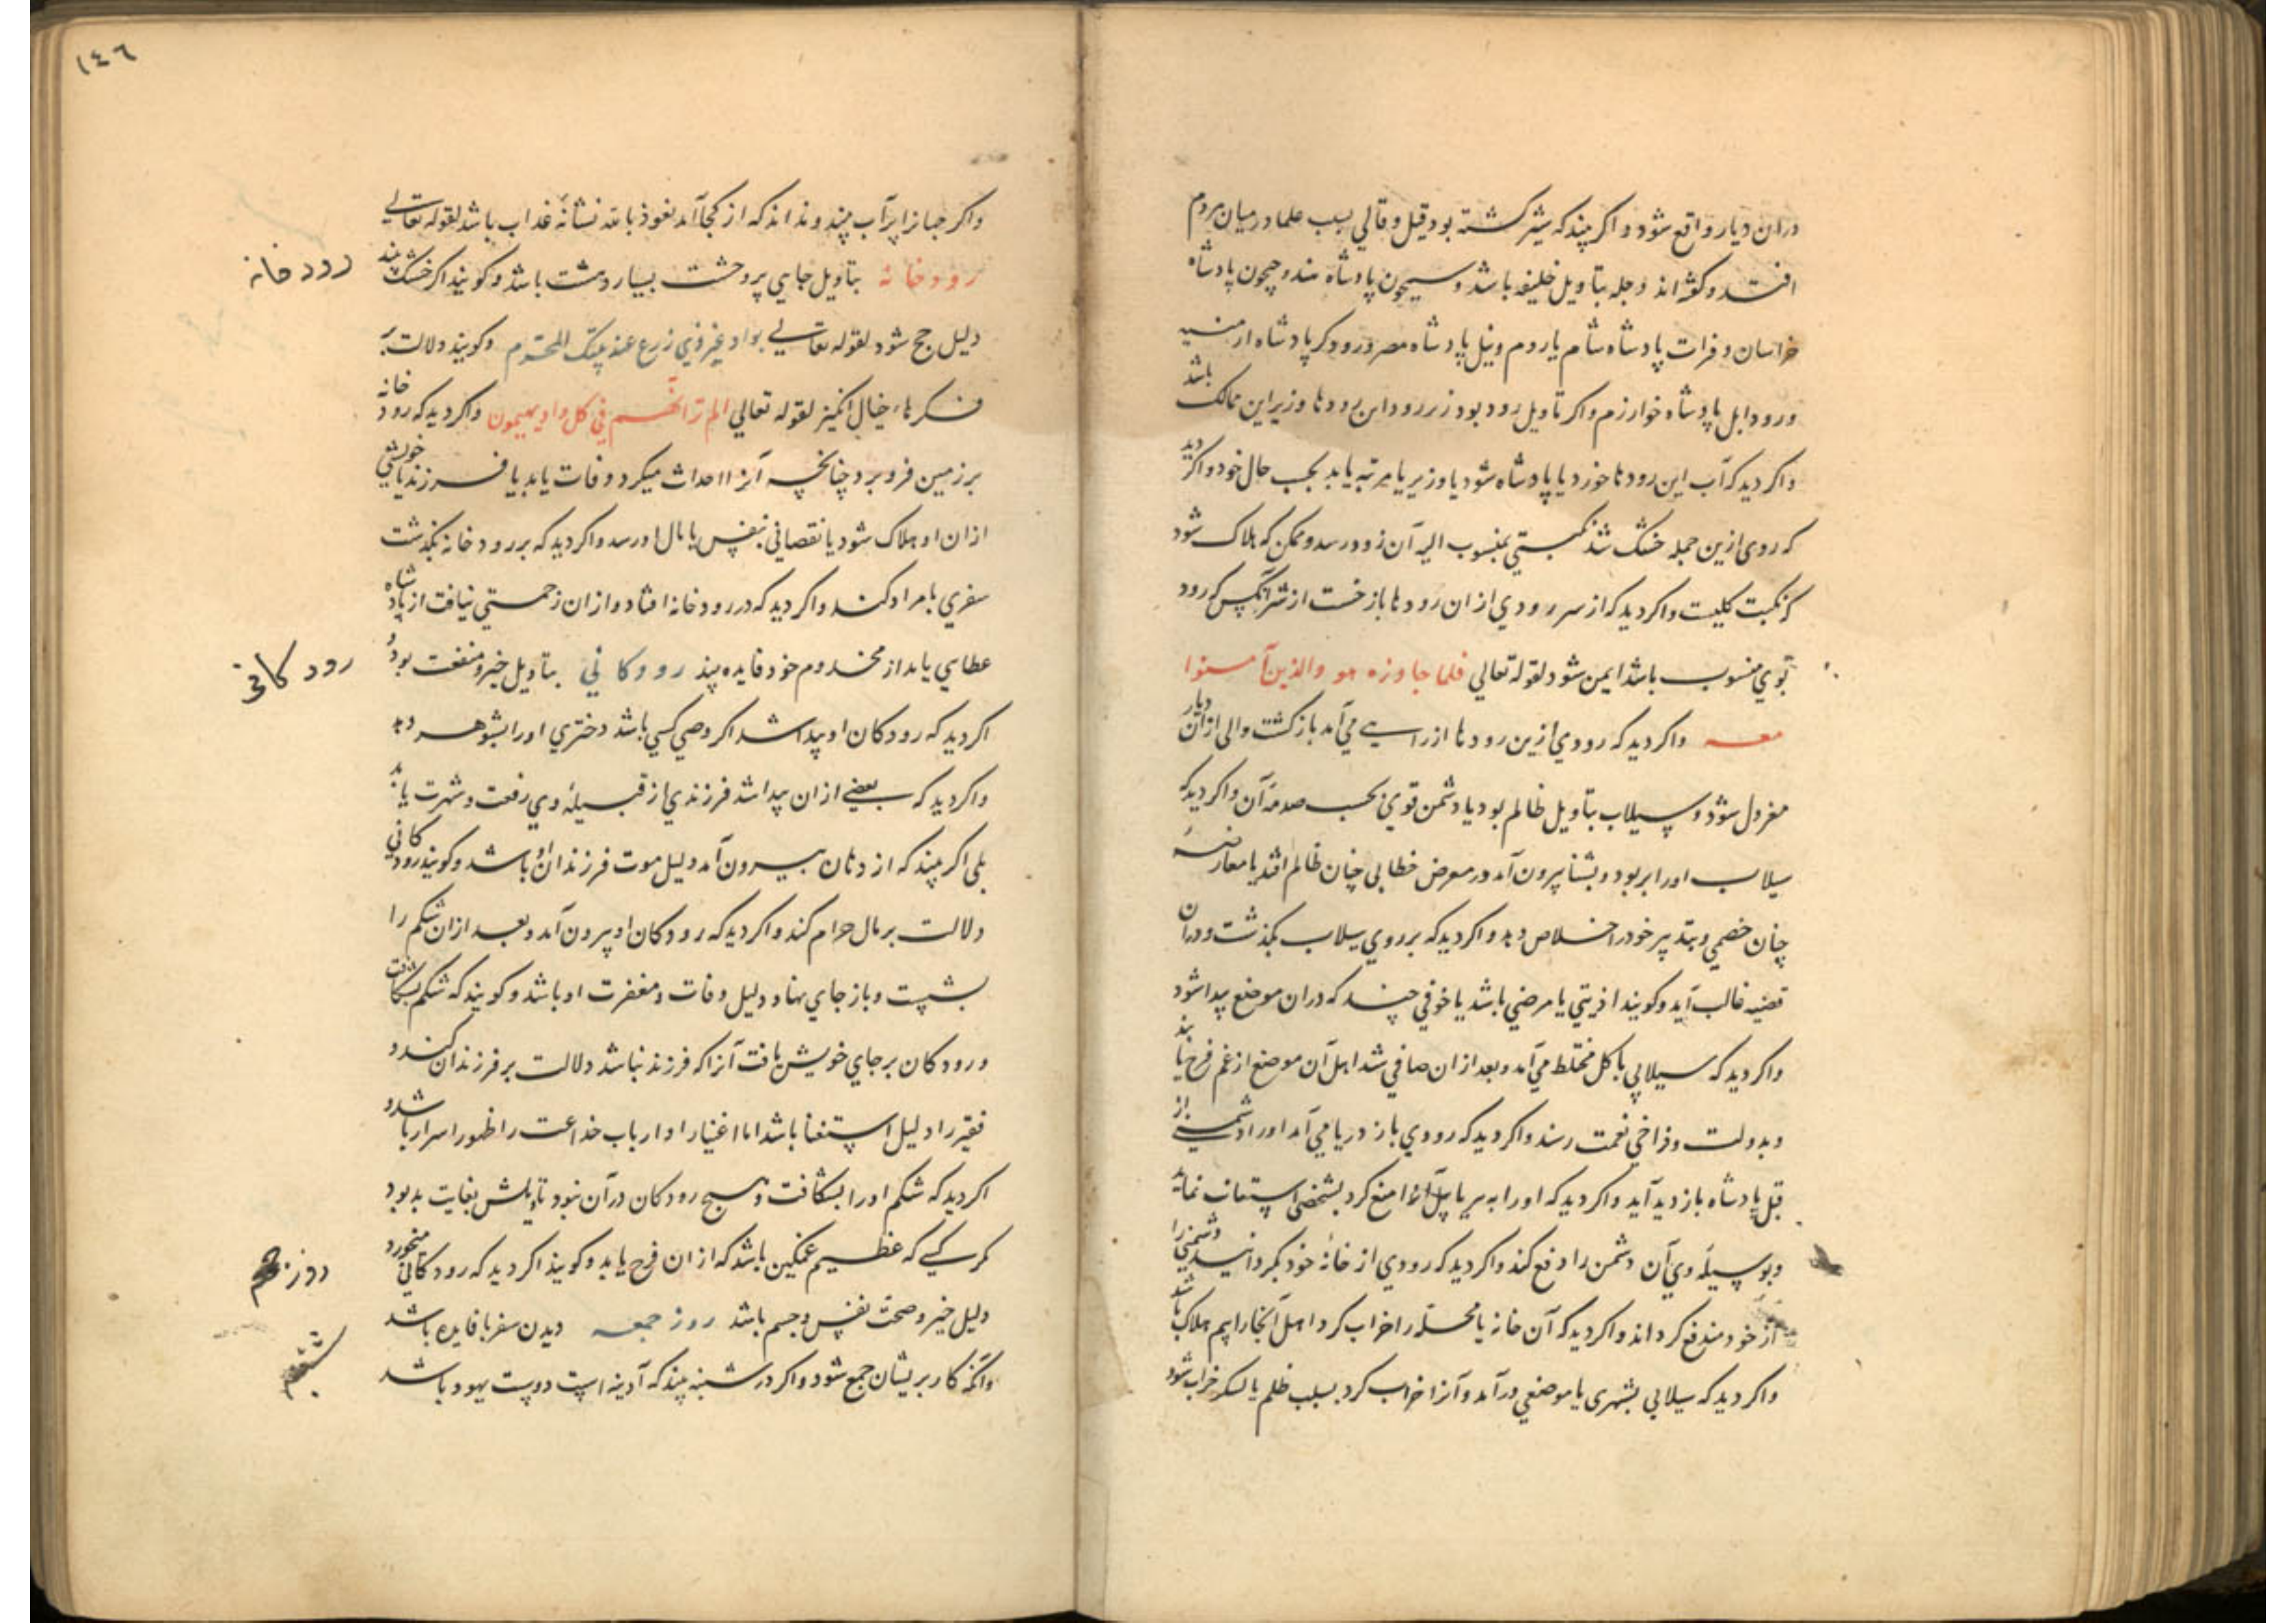 دران دیار واقع شود و اکر بیند که شیر کشته بود قیل و قالی بسبب علما در میان مردم
افتد و کفته‌اند دجله بتاویل خلیفه باشد و سیحون پادشاه هند و جیحون پادشاه
خراسان و فرات پادشاه شام یا روم و نیل پادشاه مصر و رود کر پادشاه ارمنیه باشد
و رود ابل پادشاه خوارزم و اکر تاویل رود بود زبر رود این رودها وزیر این ممالک
و اکر دید که آب این رودها خورد یا پادشاه شود یا وزیر یا مرتبه یابد بحسب حال خود و اکر دید
که رودی ازین جمله خشک شد نکبتی بمنسوب الیه آن رود رسد و ممکن که هلاک شود
که نکبت کلیست و اکر دید که از سر رودی ازان رودها باز خست از شر آنکس که رود
بوی منسوب باشد ایمن شود لقوله تعالی فلما جاوزه هو والذین آمنوا
معه و اکر دید که رودی ازین رودها از راهی می‌آمد بازکشت والی ازان دیار
معزول شود و سیلاب بتاویل ظالم بود یا دشمن قوی بحسب صدمه آن و اکر دید که
سیلاب اورا بربود و بشنا بیرون آمد در معرض خطابی چنان ظالم افتد یا معارضه
چنان خصمی و بتدبیر خود را خلاص دهد و اکر دید که بر روی سیلاب بکذشت و دران
قضیه غالب آید و کویند اذیتی یا مرضی باشد یا خوفی چند که دران موضع پیدا شود
و اکر دید که سیلابی با کل مختلط می‌آمد و بعد ازان صافی شد اهل آن موضع از غم فرح یابند
و بدولت و فراخی نعمت رسند و اکر دید که رودی باز دریا می‌آمد اورا دشمنی از
قبل پادشاه باز دید آید و اکر دید که اورا منع کرد بشخصی استعانت نماید
و بوسیله وی آن دشمن را دفع کند و اکر دید که رودی از خانه خود بکردانید دشمنی را
از خود مندفع کرداند و اکر دید که آن خانه یا محله را خراب کرد اهل آنجا را بیم هلاک باشد
و اکر دید که سیلابی بشهری یا موضعی درآمد و آنرا خراب کرد بسبب ظلم یا لشکر خراب شود
١٤٦
و اکر جبانرا پرآب بیند و نداند که از کجا آمد نعوذ بالله نشانه عذاب باشد لقوله تعالی
رودخانه بتاویل جایی پروحشت بسیار دهشت باشد و کویند اکر خشک بیند
رودخانه
دلیل حج شود لقوله تعالی بواد غیر ذی زرع عند بیتک المحرم و کویند دلالت بر
فکرهاء خیال انکیز لقوله تعالی الم تر انهم فی کل واد یهیمون و اکر دید که رودخانه
بر زمین فرو برد چنانچه آنرا احداث میکرد وفات یابد یا فرزند یا خویشی
ازان او هلاک شود یا نقصانی بنفس یا بمال او رسد و اکر دید که بر رودخانه بکذشت
سفری بامراد کند و اکر دید که در رودخانه افتاد و ازان زحمتی نیافت از پادشاه
عطایی یابد از مخدوم خود فایده بیند رودکانی بتاویل خیر و منفعت بود و
رودکانی
اکر دید که رودکان او پیدا شد اکر وصی کسی باشد دختری اورا بشوهر دهد
و اکر دید که بعضی ازان پیدا شد فرزندی از قبیله وی رفعت و شهرت یابد
بلی اکر بیند که از دهان بیرون آمد دلیل موت فرزندان او باشد و کویند رودکانی
دلالت بر مال حرام کند و اکر دید که رودکان او بیرون آمد و بعد ازان شکم را
بشست و باز جای نهاد دلیل وفات و مغفرت او باشد و کویند که شکم بشکافت
و رودکان بر جای خویش یافت آنرا که فرزند نباشد دلالت بر فرزندان کند و
فقیر را دلیل استغنا باشد اما اغنیا را و ارباب خداعت را ظهور اسرار باشد و
اکر دید که شکم اورا بشکافت و هیچ رودکان درآن نبود تاویلش بغایت بد بود
مکر کسی که عظیم غمکین باشد که ازان فرح یابد و کویند اکر دید که رودکانی میخورد
دلیل خیر و صحت نفس و جسم باشد روز جمعه دیدن سفر بافایده باشد
و آنکه کار پریشان جمع شود و اکر در شنبه بیند که آدینه است دوست یهود باشد